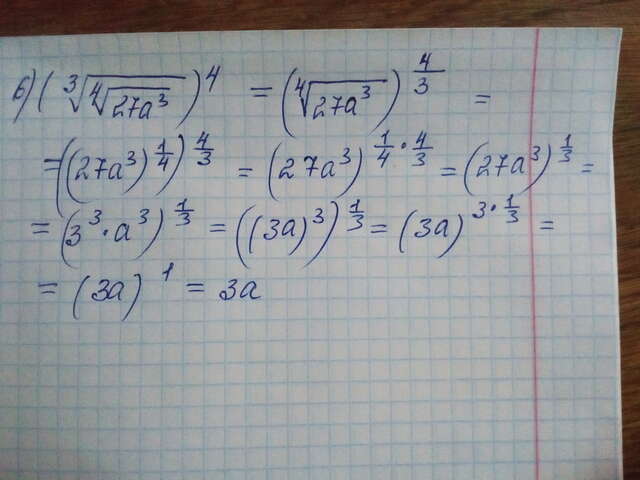 б) (∛(∜(27a³)))⁴ = (∜(27a³))^(4/3) =
= ((27a³)^(1/4))^(4/3) = (27a³)^(1/4 · 4/3) = (27a³)^(1/3) =
= (3³ · a³)^(1/3) = ((3a)³)^(1/3) = (3a)^(3 · 1/3) =
= (3a)¹ = 3a